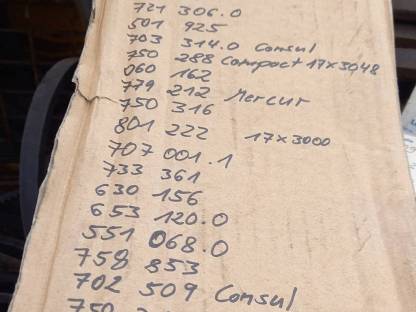 721 306.0
501 925
703 314.0 Consul
750 288 Compact 17x3048
060 162
779 212 Mercur
750 316
801 222 17x3000
707 001.1
733 361
630 156
653 120.0
551 068.0
758 853
702 509 Consul
750